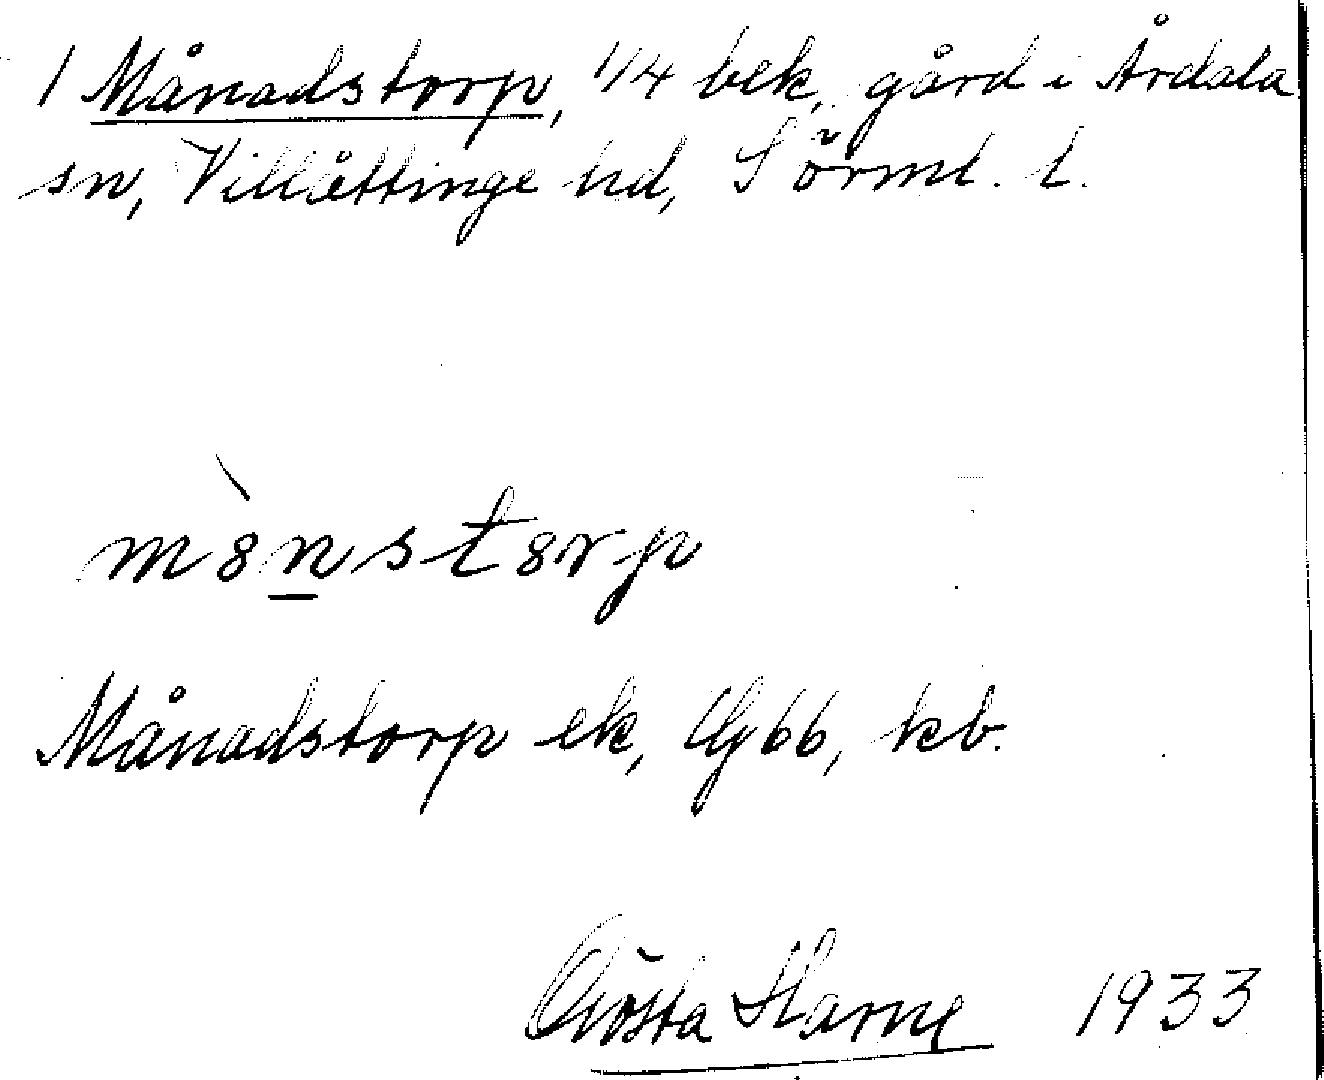 1 Månadstorp, 1/4 bek. gård i Årdala
sn, Villåttinge hd, Sörml. l.
m8̀nst8rp
Månadstorp ek, Gg 66, kb.
Gösta Harne 1933